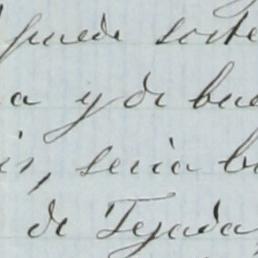 puede soste
a y de bue
is, seria b
de Tejada,